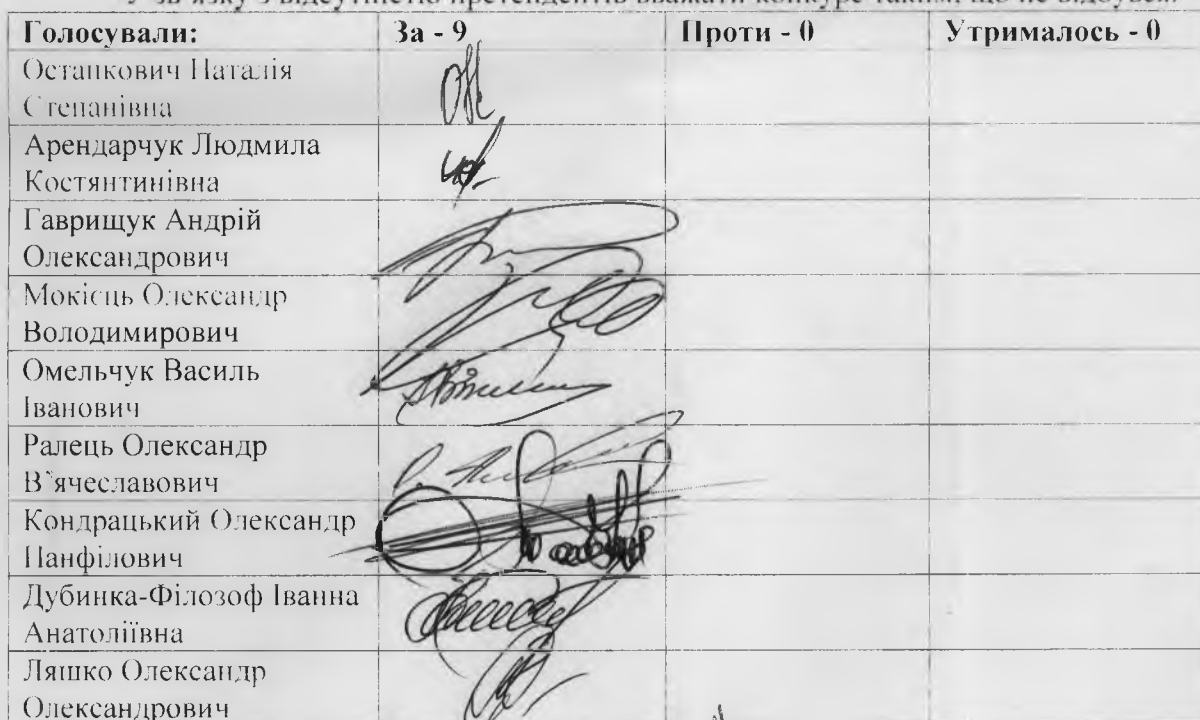 У зв'язку з відсутністю претендентів вважати конкурс таким, що не відбувся.
Голосували: За - 9 Проти - 0 Утрималось - 0
Остапкович Наталія
Степанівна
Арендарчук Людмила
Костянтинівна
Гаврищук Андрій
Олександрович
Мокієць Олександр
Володимирович
Омельчук Василь
Іванович
Ралець Олександр
В`ячеславович
Кондрацький Олександр
Панфілович
Дубинка-Філозоф Іванна
Анатоліївна
Ляшко Олександр
Олександрович